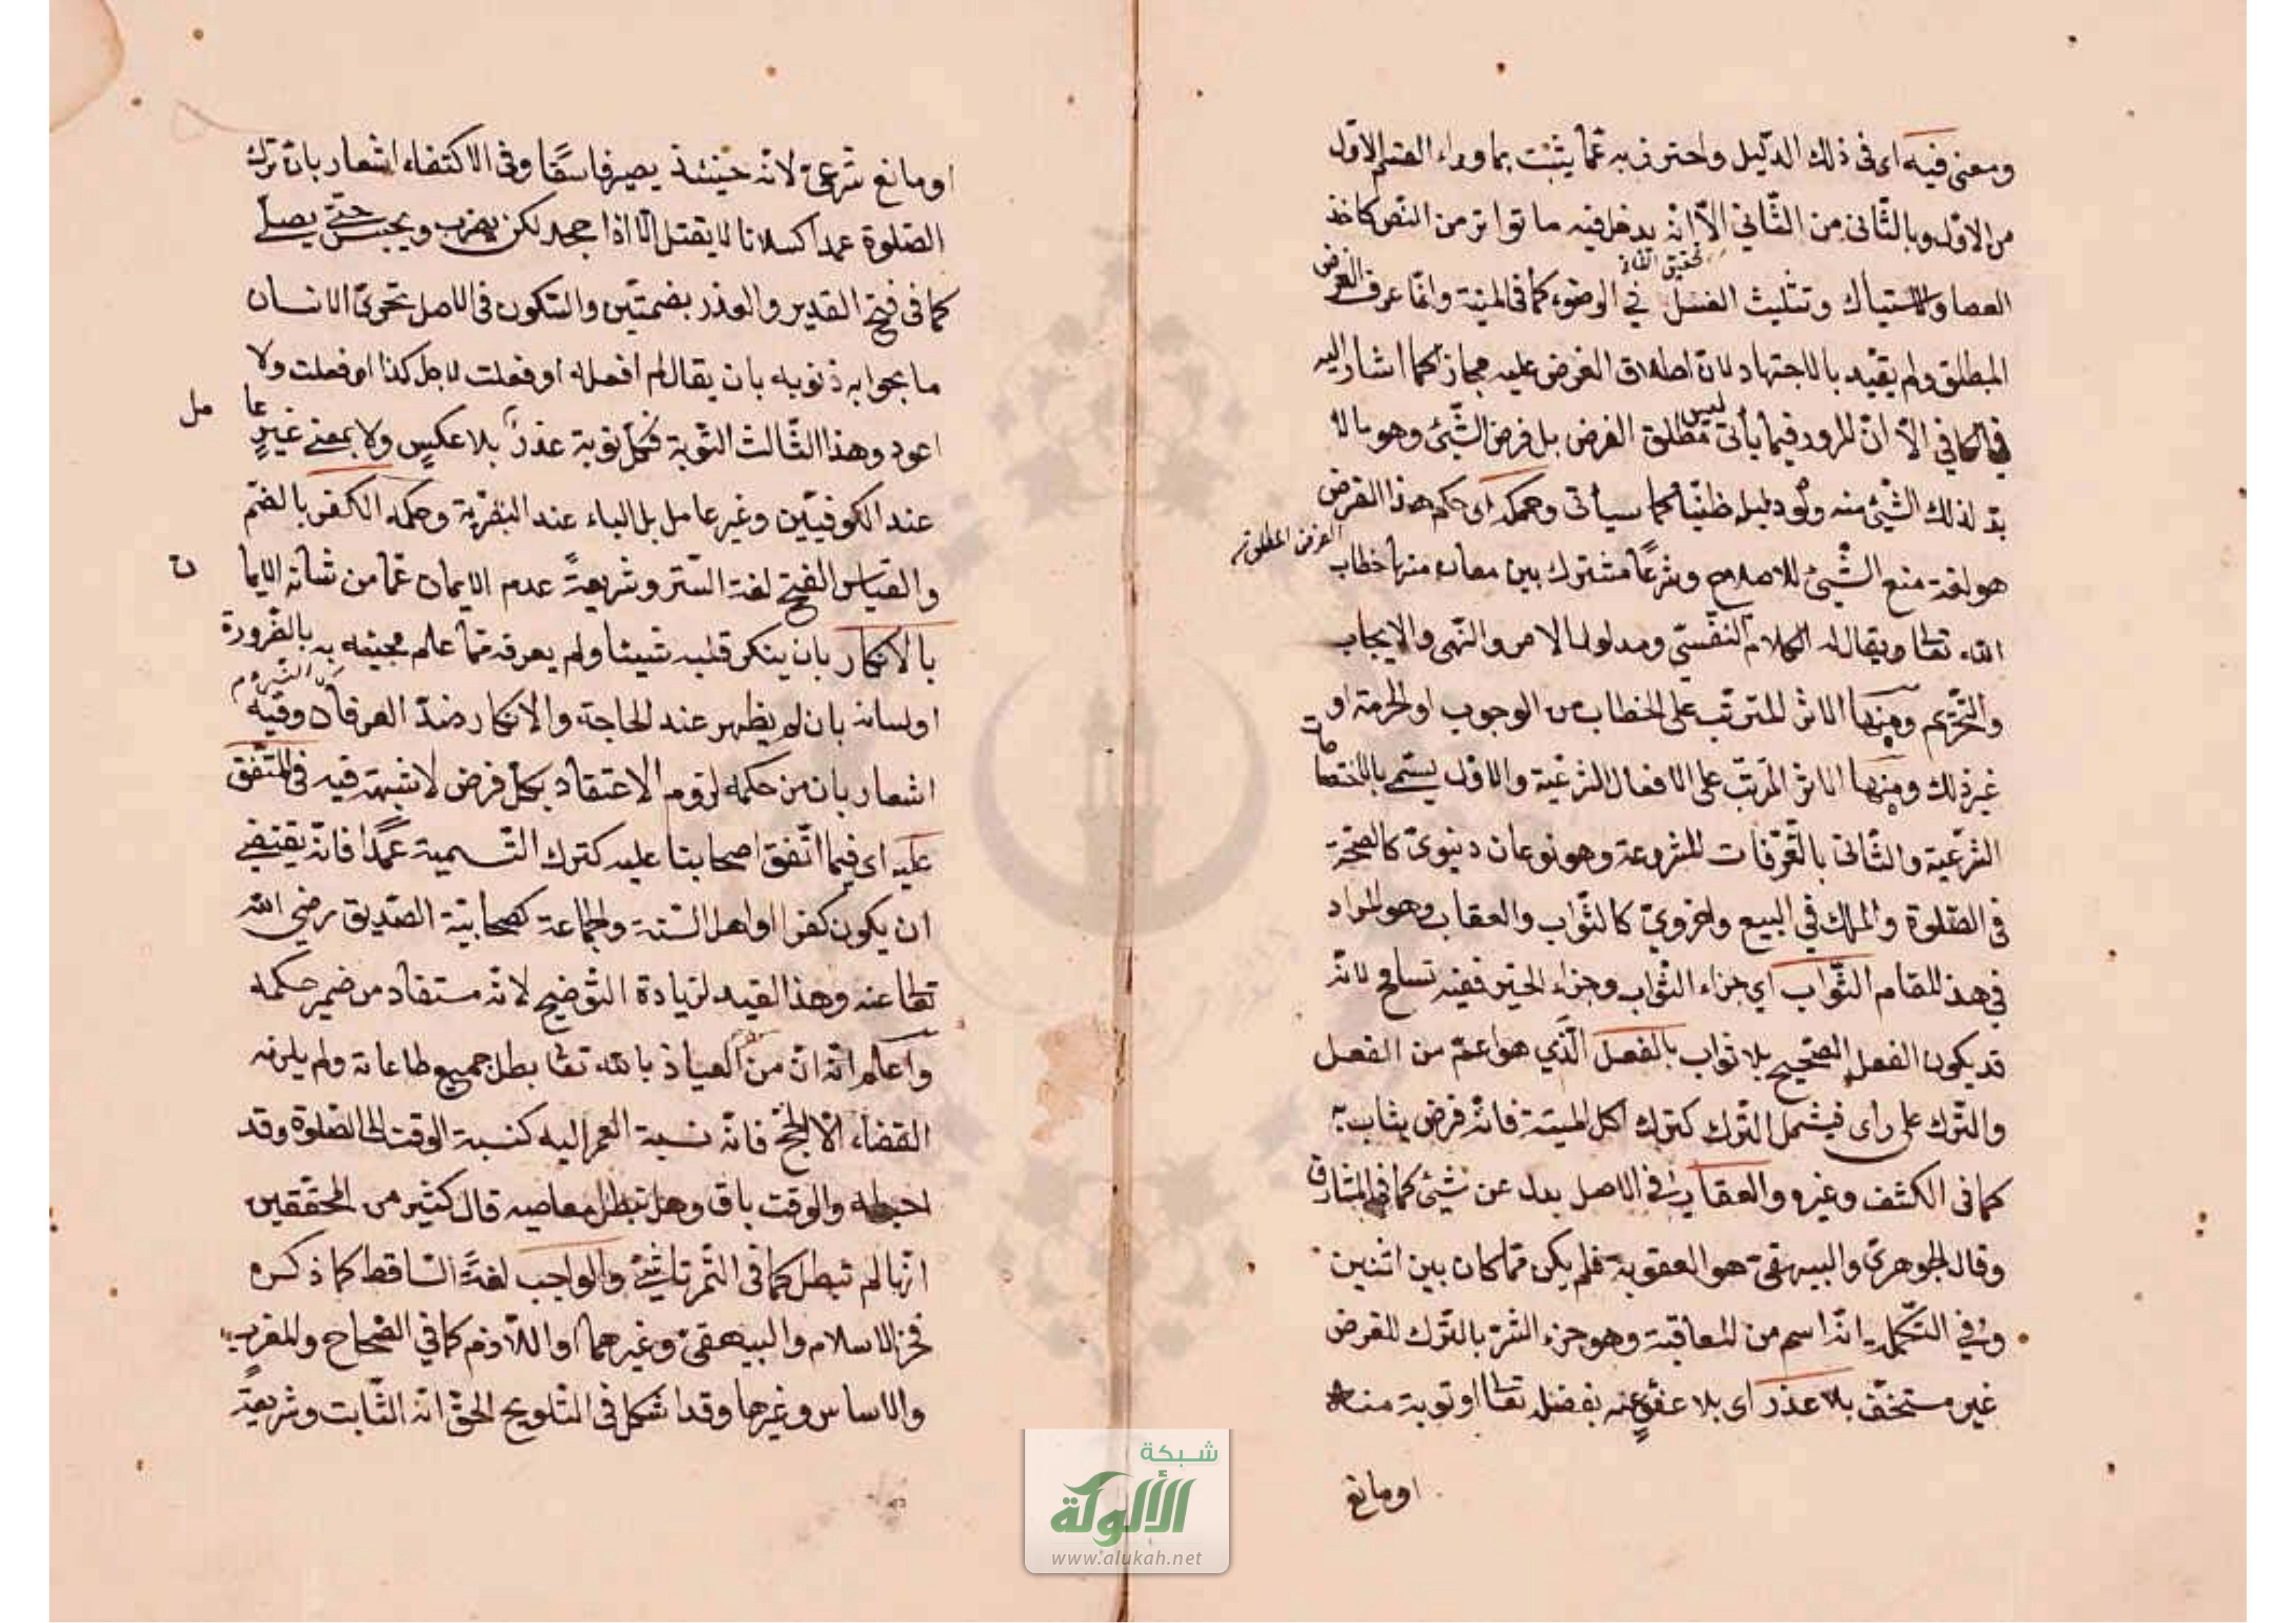 ومعنى فيه اى فى ذلك الدّليل واحترز به عمّا يثبت بما وراء القسم الاوّل
من الاوّل وبالثّانى من الثّاني الاّ انّه يدخل فيه ما تواتر من النّص كاخذ
العصا والاستياك وتثليث الغسل في الوضوء كما فى المنية وانّما عرف الفرض
تحقيق
المطلق ولم يقيّد بالاجتهاد لانّ اطلاق الفرض عليه مجاز كما اشار اليه
فى الكافي الاّ انّ المرور فيما يأتى ليس مطلق الفرض بل فرض الشّئ وهو ما لا
بدّ لذلك الشّئ منه ولو دليله ظنّيّا كما سيأتى وحكمه اى حكم هذا الفرض
الفرض المطلق
هو لغة منع الشّئ للاصلاح وشرعًا مشترك بين معان منها خطاب
الله تعالى ويقال له الكلام النّفسىّ ومدلوله الامر والنّهى والايجاب
والتّحريم ومنها الاثر المترتّب على الخطاب من الوجوب او الحرمة او
غير ذلك ومنها الاثر المرتّب على الافعال الشّرعيّة والاوّل يسمّى بالاختصاصات
الشّرعيّة والثّانى بالتّصرّفات المشروعة وهو نوعان دنيوىّ كالصّحّة
فى الصّلوة والملك في البيع واخروىّ كالثّواب والعقاب وهو المراد
في هذا المقام الثّواب اي جزاء الثّواب وجزاء الخير ففيه تسامح لانّه
قد يكون الفعل الصّحيح بلا ثواب بالفعل الّذي هو اعمّ من الفعل
والتّرك على راى فيشمل التّرك كترك اكل الميتة فانّه فرض يثاب به
كما فى الكشف وغيره والعقاب في الاصل بدل عن شئ كما فى المشارق
وقال الجوهرىّ والبيهقىّ هو العقوبة فلم يكن ممّا كان بين اثنين
وفي التّكملة انّه اسم من المعاقبة وهو جزاء الشّرّ بالتّرك للفرض
غير مستخفّ بلا عذر اى بلا عفو عنه بفضله تعالى او توبة منه
او مانع
او مانع شرعىّ لانّه حينئذ يصير فاسقًا وفى الاكتفاء اشعار بانّ ترك
الصّلوة عمدا كسلانا لا يقتل الاّ اذا جحد لكن يضرب ويحبس حتّى يصلّى
كما فى فتح القدير والعذر بضمّتين والسّكون فى الاصل تحرّى الانسان
ما يمحو به ذنوبه بان يقال لم افعله او فعلت لاجل كذا او فعلت ولا
اعود وهذا الثّالث التّوبة فكلّ توبة عذر بلا عكس ولا بمعنى غير عا
مل
عند الكوفيّين وغير عامل بل الباء عند البصريّة وحكمه الكفر بالضّمّ
والقياس الفتح لغة السّتر وشريعةً عدم الايمان عمّا من شانه الايما
ن
بالانكار بان ينكر قلبه شيئا ولم يعرفه ممّا علم مجيئه به بالضّرورة
اولسانه بان لم يظهر عند الحاجة والانكار ضدّ العرفان وفيه
اشعار بان من حكمه لزوم الاعتقاد بكلّ فرض لا شبهة فيه فى المتّفق
عليه اى فيما اتّفق اصحابنا عليه كترك التّسمية عمدًا فانّه يقتضى
ان يكون كفرا او اهل السّنّة والجماعة كصحابيّة الصّديق رضى الله
تعالى عنه وهذا القيد لزيادة التّوضيح لانّه مستفاد من ضمير حكمه
واعلم انّه انّ من العياذ بالله تعالى بطل جميع طاعاته ولم يلزمه
القضاء الاّ الحجّ فانّه نسبة العمر اليه كنسبة الوقت الى الصّلوة وقد
احبطه والوقت باق وهل تبطل معاصيه قال كثير من المحقّقين
انّها لم تبطل كما فى التّمرتاشىّ والواجب لغةً السّاقط كما ذكره
فخر الاسلام والبيهقىّ وغيرهما او اللاّزم كما في الصّحاح والمغرب
والاساس وغيرها وقد اشكل فى التّلويح الحقّ انّه الثّابت وشريعةً
شبكة
الألوكة
www.alukah.net